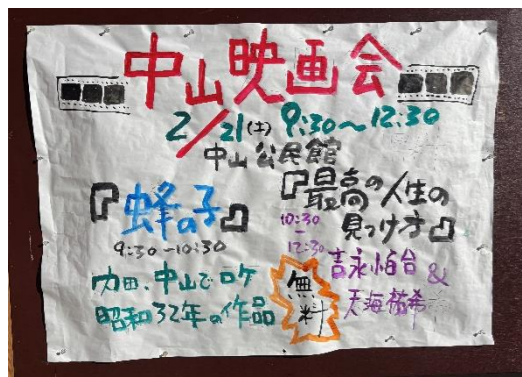 中山映画会
2/21(土) 9:30〜12:30
中山公民館
『蜂の子』
9:30-10:30
内田、中山でロケ
昭和32年の作品
『最高の人生の
見つけ方』
10:30
-
12:30
吉永小百合 &
天海祐希
無料